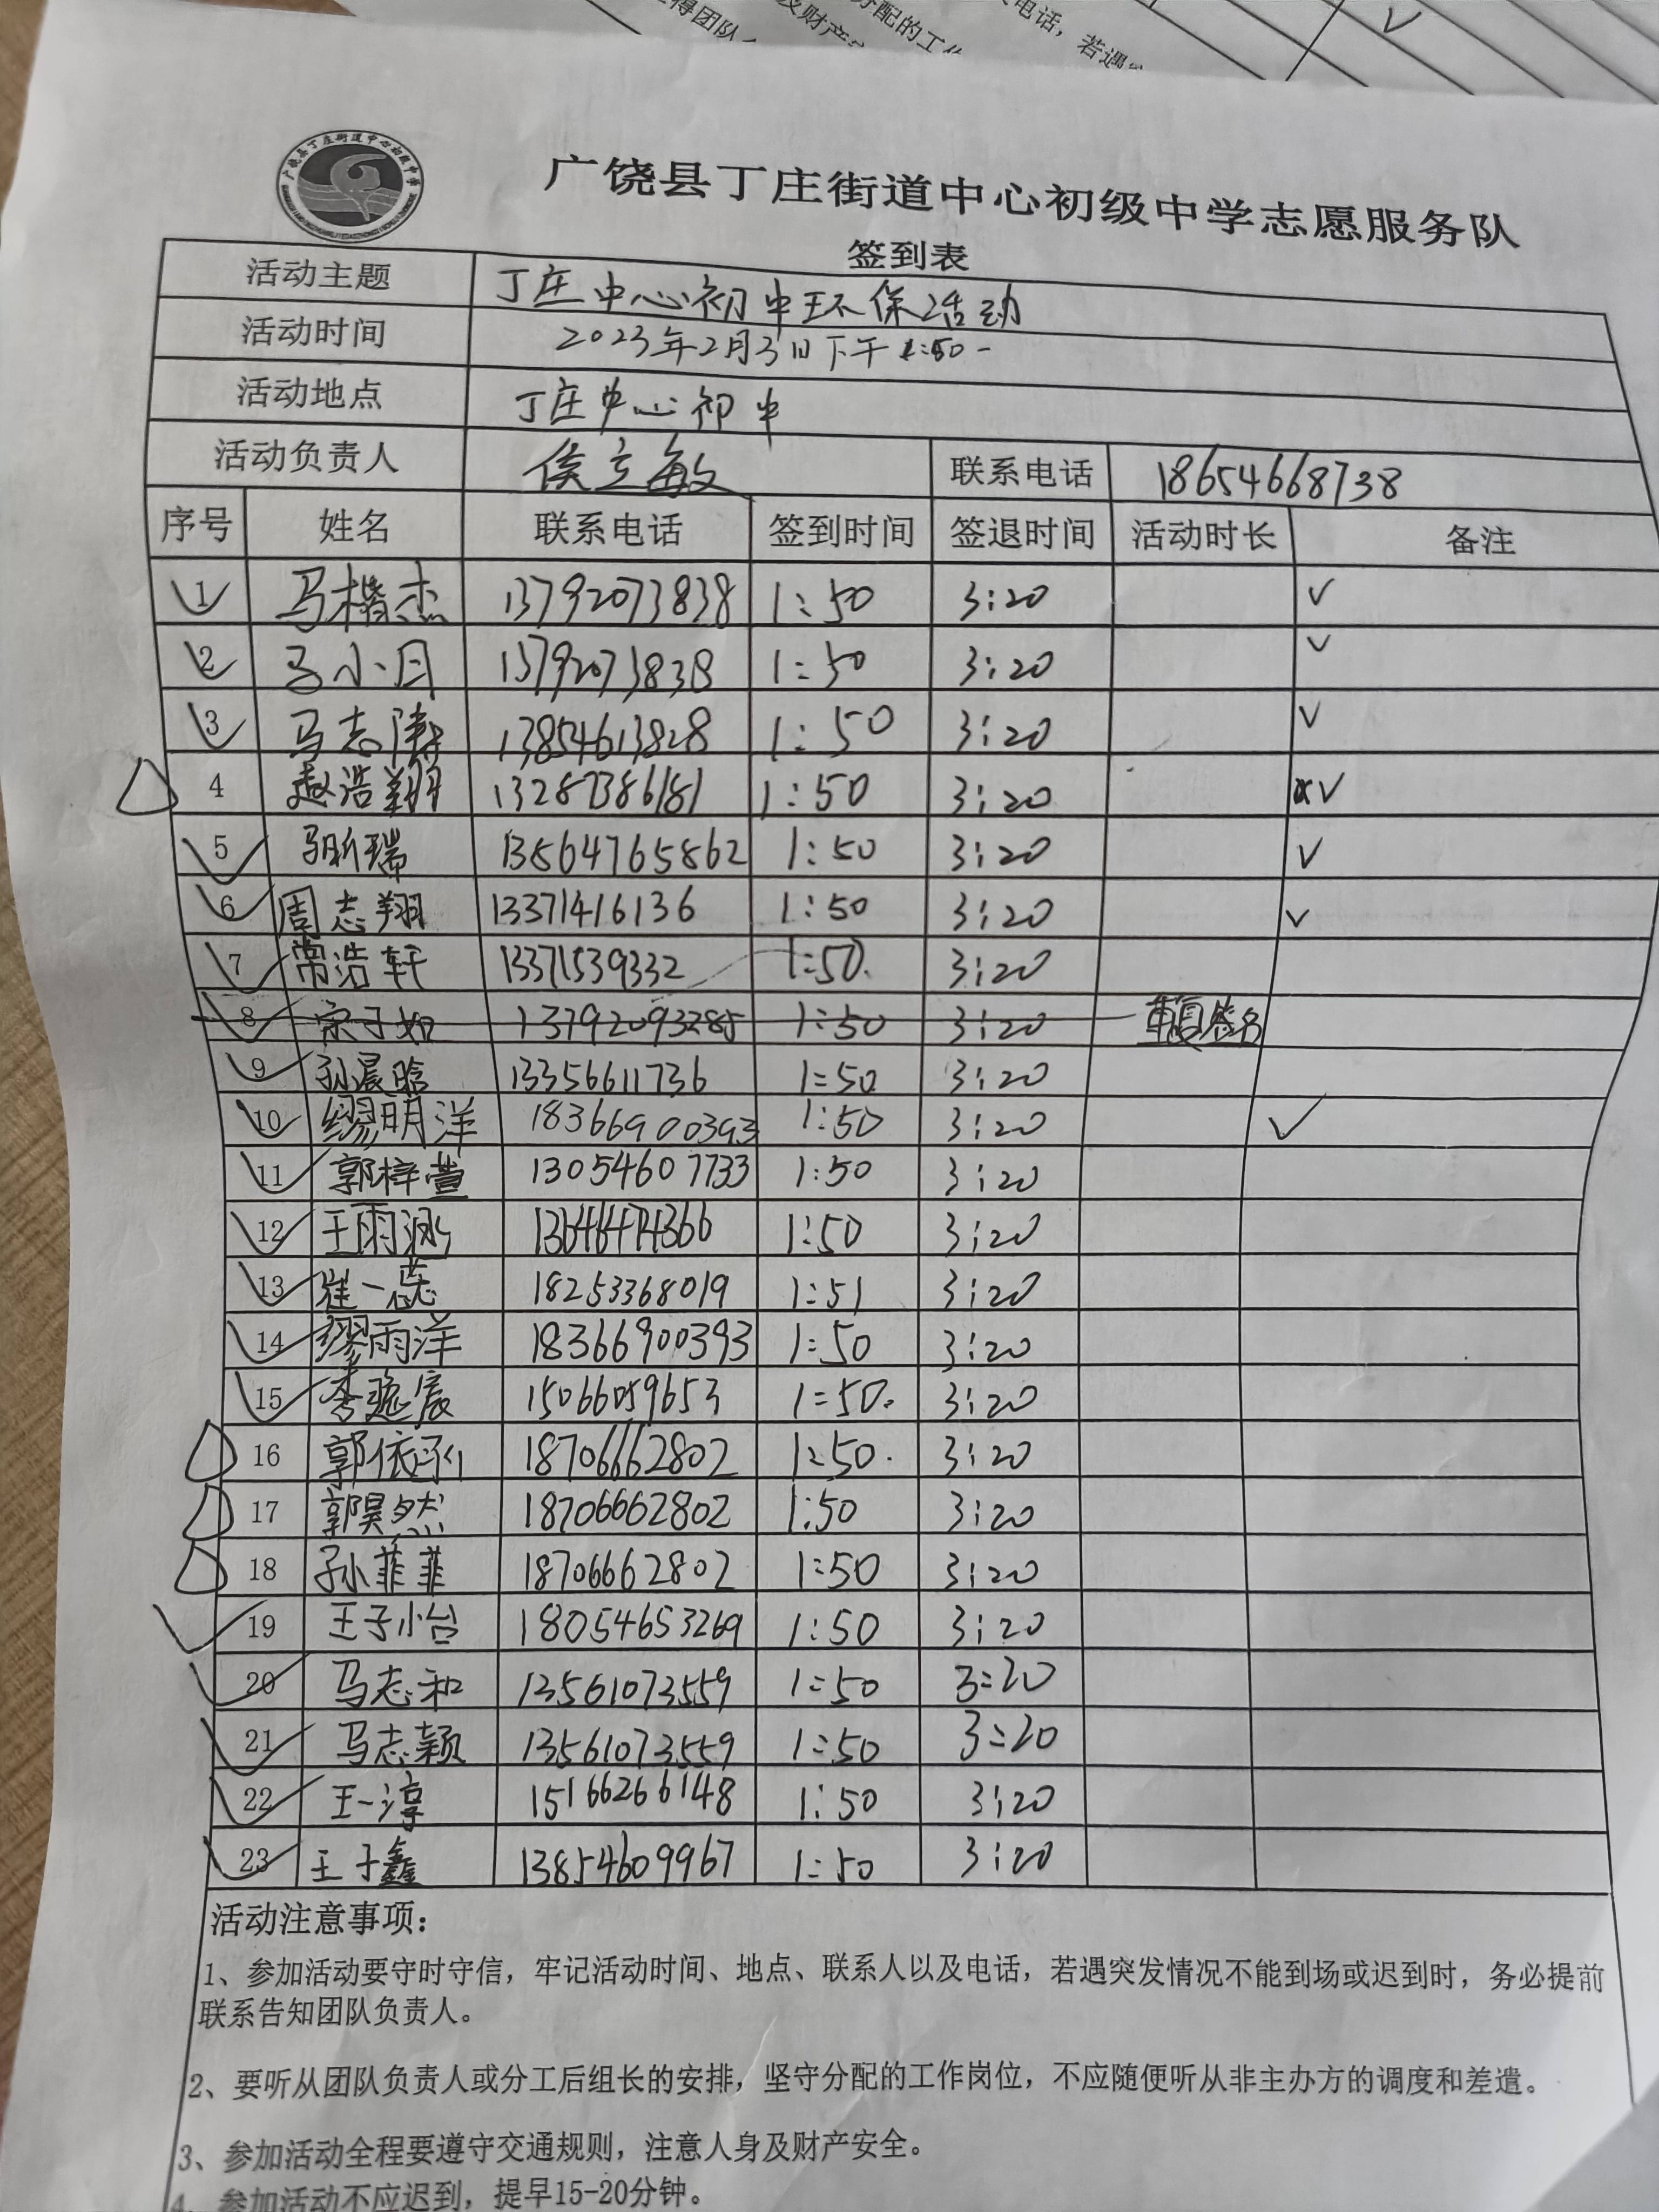 得团队
及财产
分配的工作
电话，若遇
广饶县丁庄街道中心初级中学志愿服务队
签到表
活动主题 丁庄中心初中环保活动
活动时间 2023年2月3日下午1:50-
活动地点 丁庄中心初中
活动负责人 侯立敏 联系电话 18654668738
序号 姓名 联系电话 签到时间 签退时间 活动时长 备注
1 马楷杰 13792073838 1:50 3:20 ✓
2 马小月 13792073838 1:50 3:20 ✓
3 马志 13854613828 1:50 3:20 ✓
4 赵浩翔 13287386181 1:50 3:20 ✓
5 马昕瑞 13564765862 1:50 3:20 ✓
6 周志翔 13371416136 1:50 3:20 ✓
7 常浩轩 13371539332 1:50 3:20
8 宋子如 13792093285 1:50 3:20 重复签名
9 孙晨晗 13356611736 1:50 3:20
10 缪明洋 18366900393 1:50 3:20 ✓
11 郭梓萱 13054607733 1:50 3:20
12 王雨涵 1:50 3:20
13 崔一蕊 18253368019 1:51 3:20
14 缪雨洋 18366900393 1:50 3:20
15 李逸宸 15066059653 1:50 3:20
16 郭依 18706662802 1:50 3:20
17 郭昊然 18706662802 1:50 3:20
18 孙菲菲 18706662802 1:50 3:20
19 王子小台 18054653269 1:50 3:20
20 马志和 13561073559 1:50 3:20
21 马志颖 13561073559 1:50 3:20
22 王一淳 15166266148 1:50 3:20
23 王子鑫 13854609967 1:50 3:20
活动注意事项：
1、参加活动要守时守信，牢记活动时间、地点、联系人以及电话，若遇突发情况不能到场或迟到时，务必提前
联系告知团队负责人。
2、要听从团队负责人或分工后组长的安排，坚守分配的工作岗位，不应随便听从非主办方的调度和差遣。
3、参加活动全程要遵守交通规则，注意人身及财产安全。
4、参加活动不应迟到，提早15-20分钟。